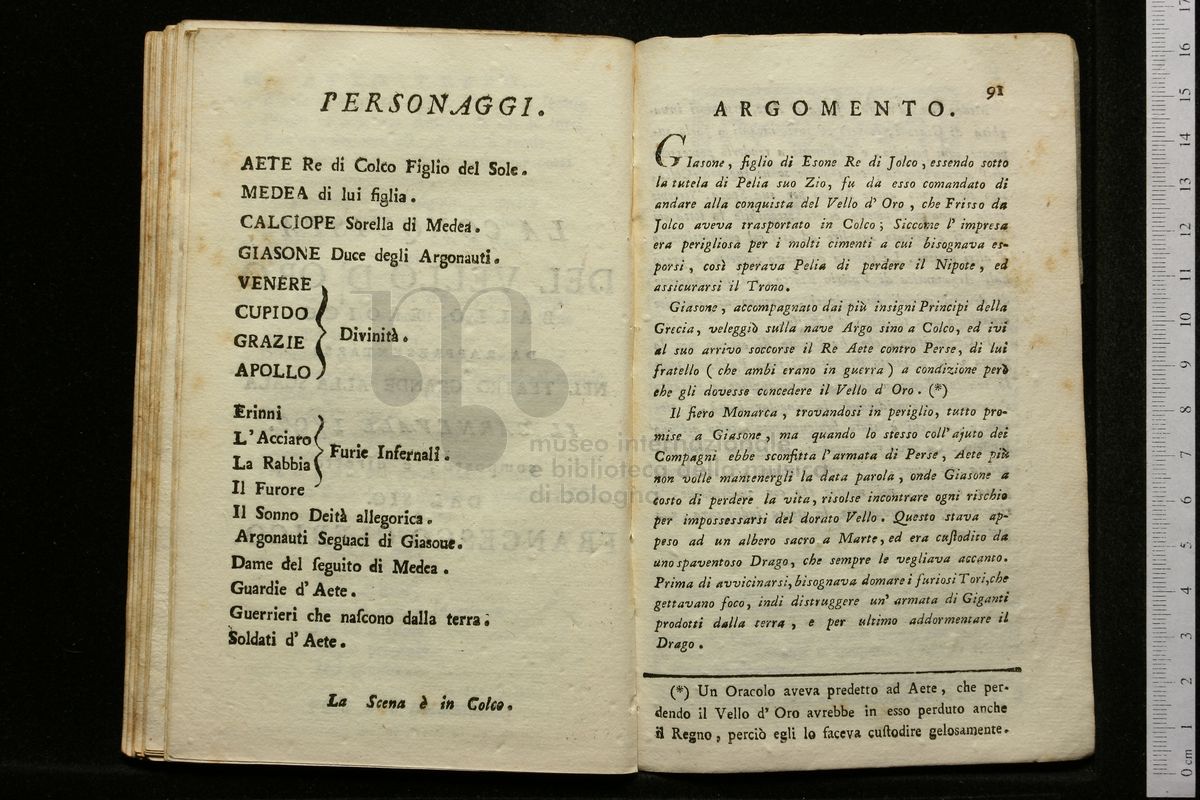 PERSONAGGI.
AETE Re di Colco Figlio del Sole.
MEDEA di lui figlia.
CALCIOPE Sorella di Medea.
GIASONE Duce degli Argonauti.
VENERE
CUPIDO
GRAZIE
APOLLO
Divinità.
Erinni
L'Acciaro
La Rabbia
Il Furore
Furie Infernali.
Il Sonno Deità allegorica.
Argonauti Seguaci di Giasone.
Dame del ſeguito di Medea.
Guardie d'Aete.
Guerrieri che naſcono dalla terra.
Soldati d'Aete.
La Scena è in Colco.
91
ARGOMENTO.
GIasone, figlio di Esone Re di Jolco, essendo sotto
la tutela di Pelia suo Zio, fu da esso comandato di
andare alla conquista del Vello d'Oro, che Frisso da
Jolco aveva trasportato in Colco; Siccome l'impresa
era perigliosa per i molti cimenti a cui bisognava es-
porsi, così sperava Pelia di perdere il Nipote, ed
assicurarsi il Trono.
Giasone, accompagnato dai più insigni Principi della
Grecia, veleggiò sulla nave Argo sino a Colco, ed ivi
al suo arrivo soccorse il Re Aete contro Perse, di lui
fratello (che ambi erano in guerra) a condizione però
che gli dovesse concedere il Vello d'Oro. (*)
Il fiero Monarca, trovandosi in periglio, tutto pro-
mise a Giasone, ma quando lo stesso coll'ajuto dei
Compagni ebbe sconfitta l'armata di Perse, Aete più
non volle mantenergli la data parola, onde Giasone a
costo di perdere la vita, risolse incontrare ogni rischio
per impossessarsi del dorato Vello. Questo stava ap-
peso ad un albero sacro a Marte, ed era cuſtodito da
uno spaventoso Drago, che sempre le vegliava accanto.
Prima di avvicinarsi, bisognava domare i furiosi Tori, che
gettavano foco, indi distruggere un'armata di Giganti
prodotti dalla terra, e per ultimo addormentare il
Drago.
(*) Un Oracolo aveva predetto ad Aete, che per-
dendo il Vello d'Oro avrebbe in esso perduto anche
il Regno, perciò egli lo faceva cuſtodire gelosamente.
museo internazionale
e biblioteca della musica
di bologna
0 cm 1 2 3 4 5 6 7 8 9 10 11 12 13 14 15 16 17